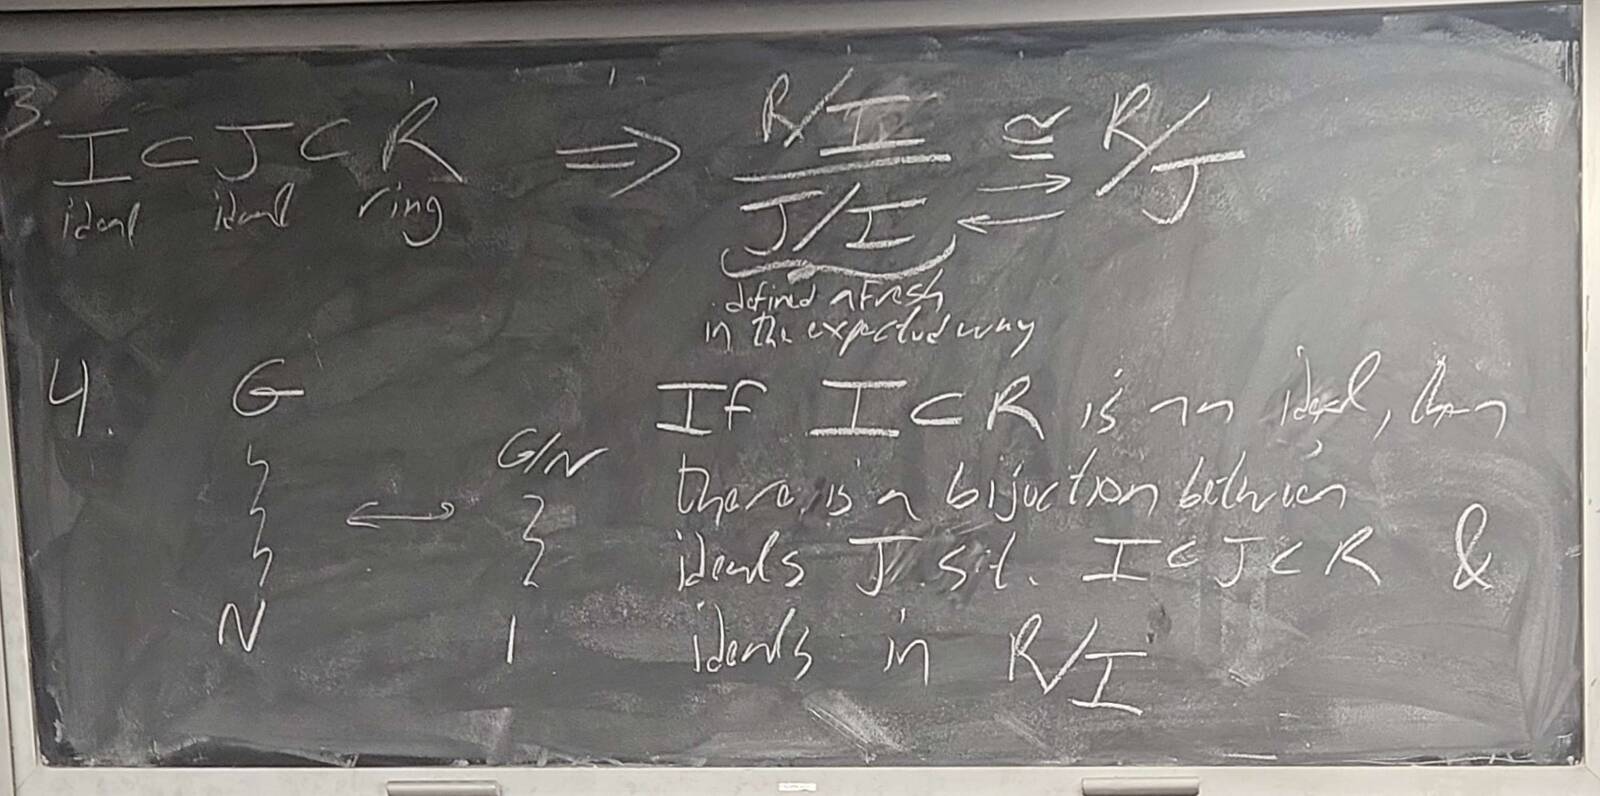 3. I ⊂ J ⊂ R ⇒ R/I / J/I ≅ R/J
ideal ideal ring
defined afresh
in the expected way
4. G
G/N
↔
N 1
If I ⊂ R is an ideal, then
there is a bijection between
ideals J s.t. I ⊂ J ⊂ R &
ideals in R/I